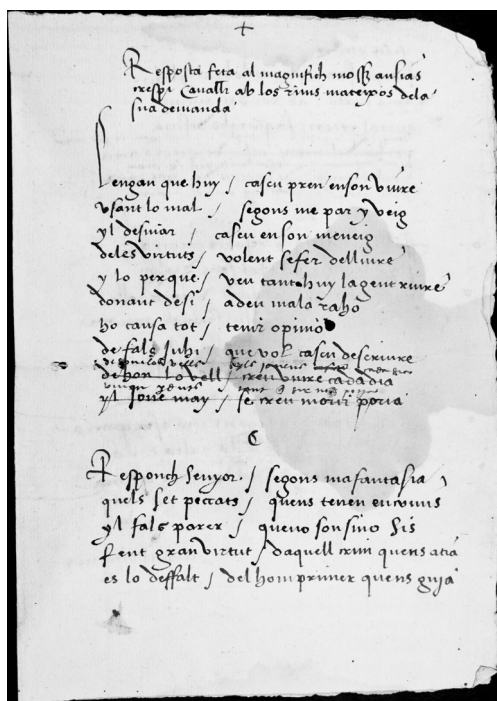 +
Resposta feta al magnifich moss ausias
crespi Cavaller ab los rims mateixos dela
sua demanda
Lengan que huy / cascu pren enson viure
vsant lo mal / segons me par y veig
yl desuiar / cascu en son meneig
deles virtuts / volent sefer delliure
y lo perque / veu tant huy lagent riure
donant desi / adeu mala raho
ho causa tot / tenir opinio
de fals juhi / que vol cascu descriure
de hon lo vell / creu viure cada dia
yl Joue may / se creu morir poria
C
Responch senyor / segons ma fantasia
quels set peccats / quens tenen
yl fals parer / que no son sino sis
fent gran virtut / daquell crim quens atia
es lo deffalt / del hom primer quens guia